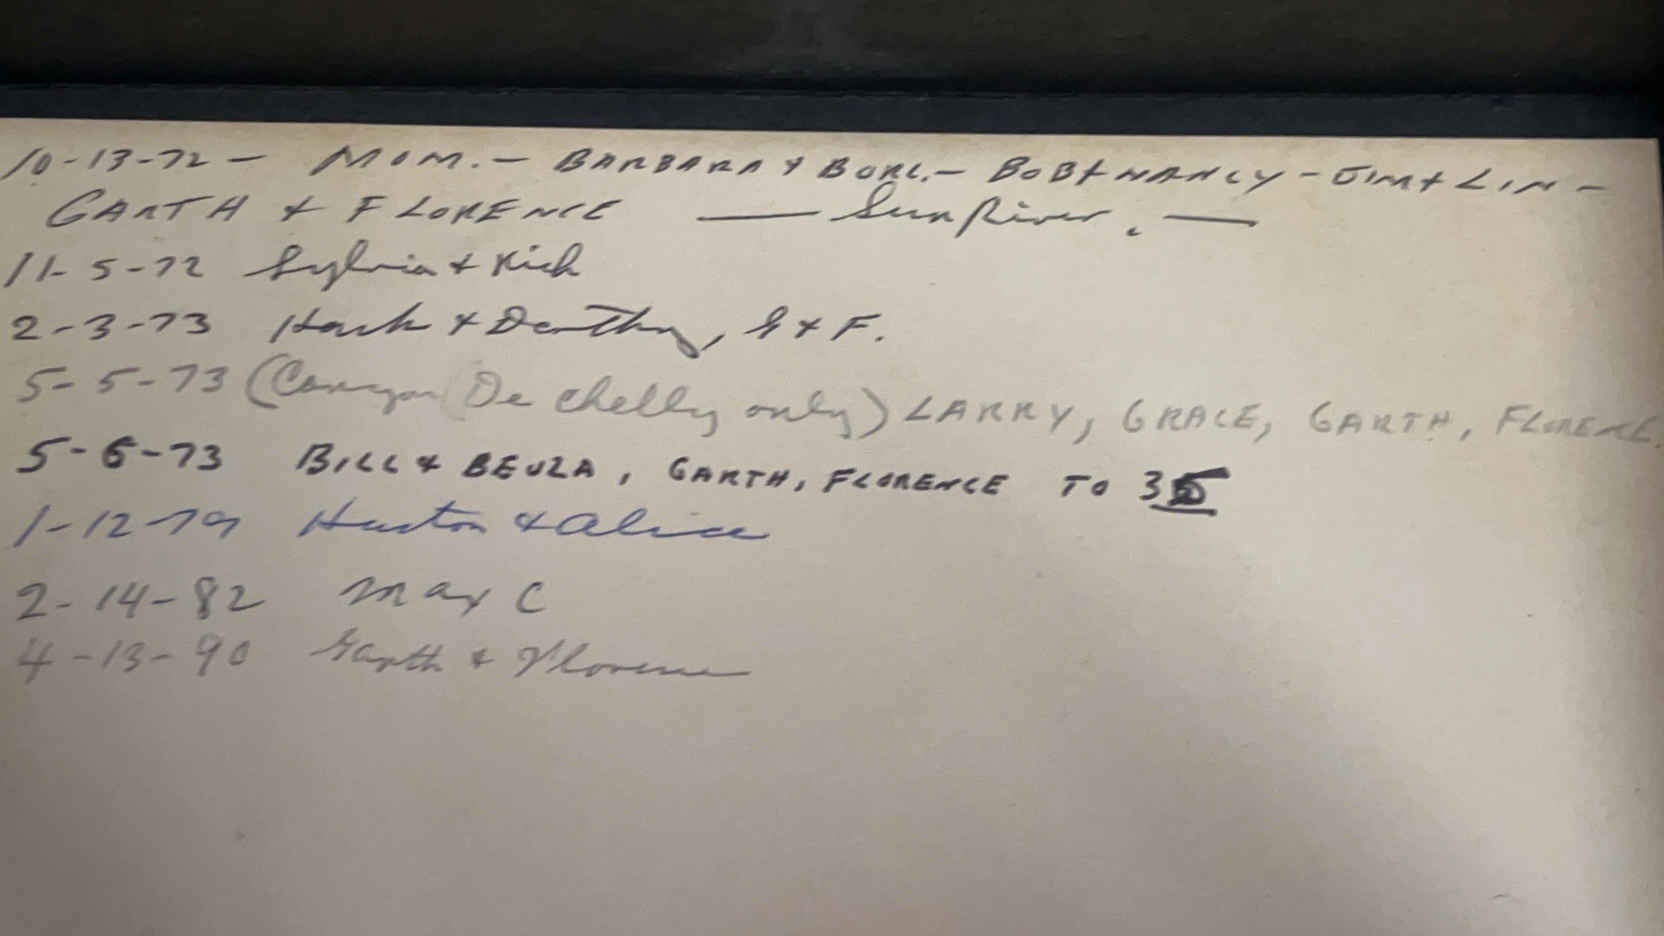 10-13-72 - MOM. - BARBARA & - BOB & NANCY - JIM & LIN -
GARTH & FLORENCE — Sun River. —
11-5-72 Sylvia & Rich
2-3-73 & Dorothy, G & F.
5-5-73 (Canyon De chelly only) LARRY, GRACE, GARTH, FLORENCE
5-6-73 BILL & BEULA, GARTH, FLORENCE TO 35
1-12-79 Huston & Alice
2-14-82 Max C
4-13-90 Garth & Florence